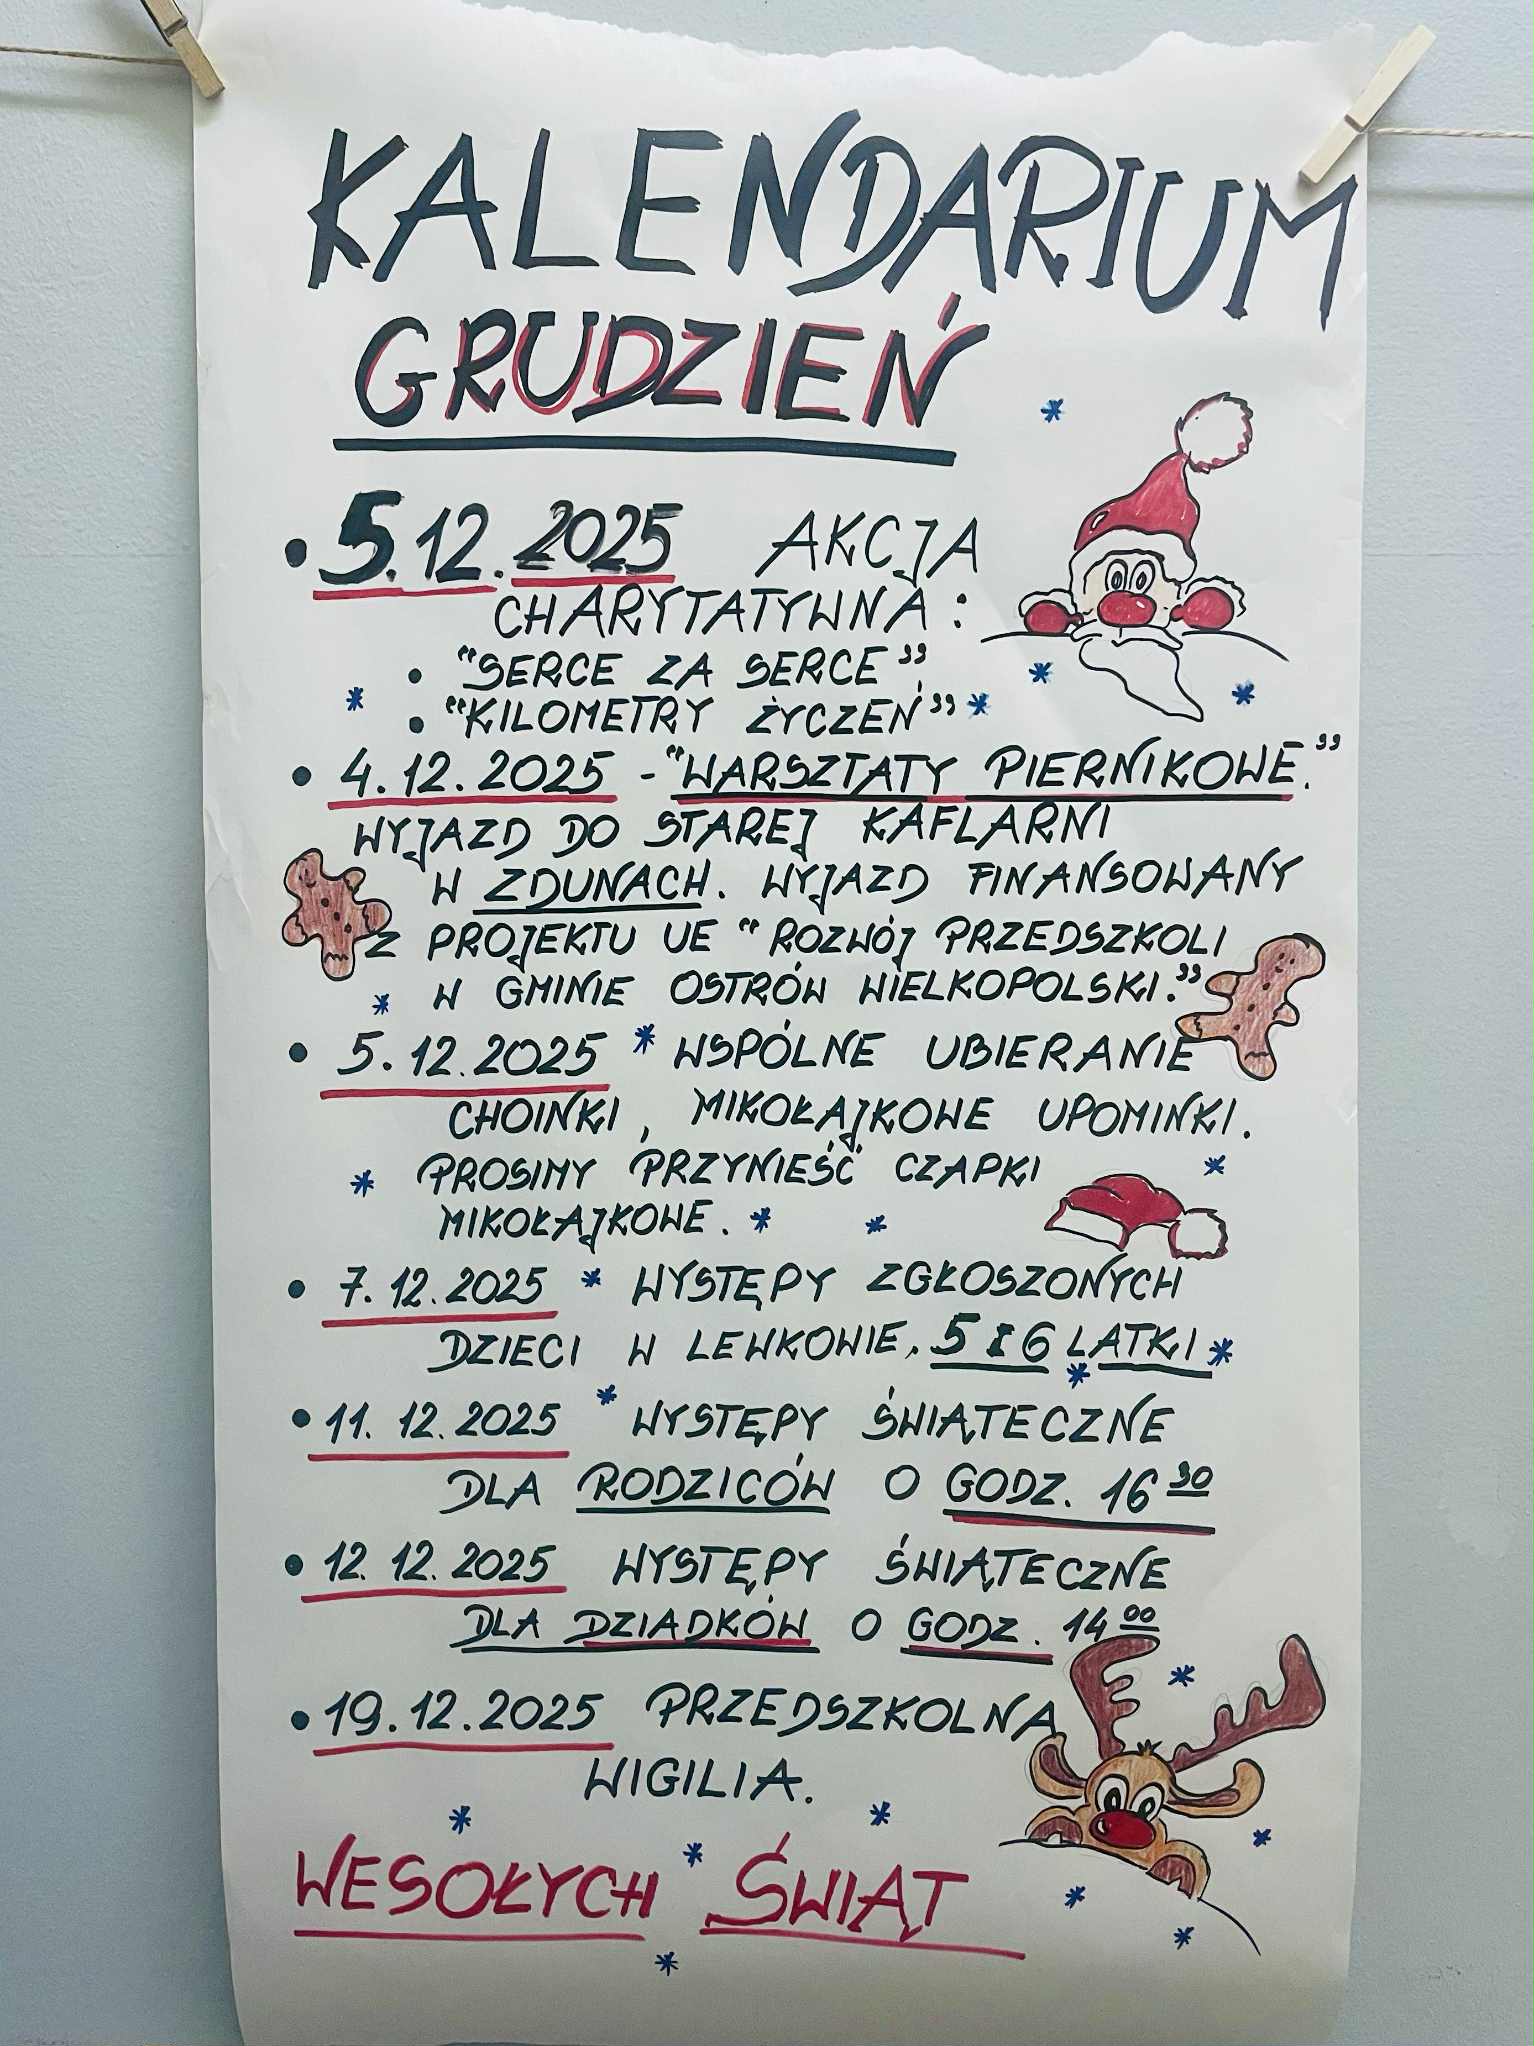 KALENDARIUM
GRUDZIEŃ
• 5.12.2025 AKCJA
CHARYTATYWNA:
• "SERCE ZA SERCE"
• "KILOMETRY ŻYCZEŃ"
• 4.12.2025 - "WARSZTATY PIERNIKOWE."
WYJAZD DO STAREJ KAFLARNI
W ZDUNACH. WYJAZD FINANSOWANY
Z PROJEKTU UE "ROZWÓJ PRZEDSZKOLI
W GMINIE OSTRÓW WIELKOPOLSKI."
• 5.12.2025 * WSPÓLNE UBIERANIE
CHOINKI, MIKOŁAJKOWE UPOMINKI.
PROSIMY PRZYNIEŚĆ CZAPKI
MIKOŁAJKOWE.
• 7.12.2025 * WYSTĘPY ZGŁOSZONYCH
DZIECI W LEWKOWIE. 5 I 6 LATKI
• 11.12.2025 * WYSTĘPY ŚWIĄTECZNE
DLA RODZICÓW O GODZ. 16 30
• 12.12.2025 WYSTĘPY ŚWIĄTECZNE
DLA DZIADKÓW O GODZ. 14 00
• 19.12.2025 PRZEDSZKOLNA
WIGILIA.
WESOŁYCH ŚWIĄT